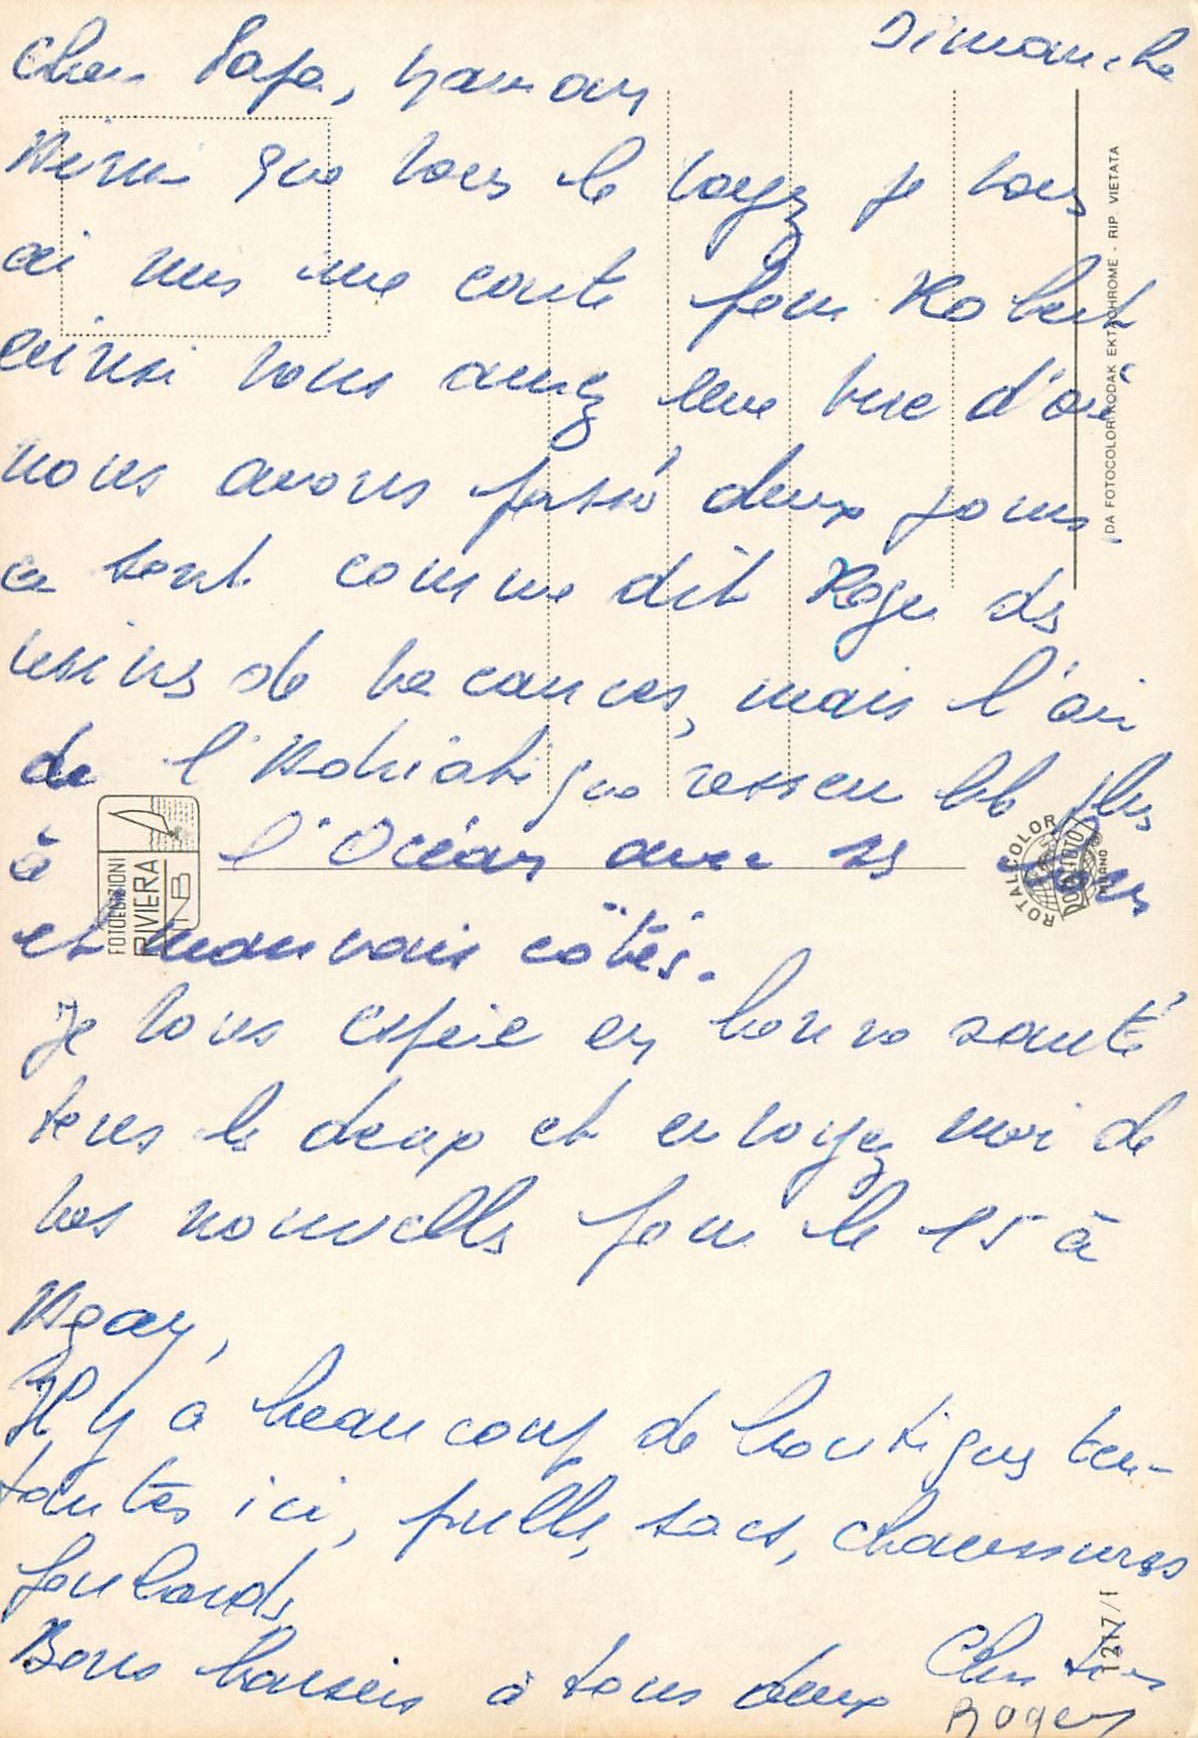 Dimanche
Cher Papa, Maman
Ainsi que vous le voyez je vous
ai mis une carte pour Robert
ainsi vous aurez une vue d'où
nous avons passé deux jours.
ce sont comme dit Roger des
usines de vacances, mais l'air
de l'Adriatique ressemble plus
à l'Océan avec ses bons
et mauvais côtés.
Je vous espère en bonne santé
tous les deux et envoyez moi de
vos nouvelles pour le 15 à
Agay,
Il y a beaucoup de boutiques ten-
tantes ici, pulls, sacs, chaussures
foulards,
Bons baisers à tous deux
Roger
DA FOTOCOLOR KODAK EKTACHROME - RIP. VIETATA
FOTOEDIZIONI
RIVIERA
ROTALCOLOR
MILANO
1217/I